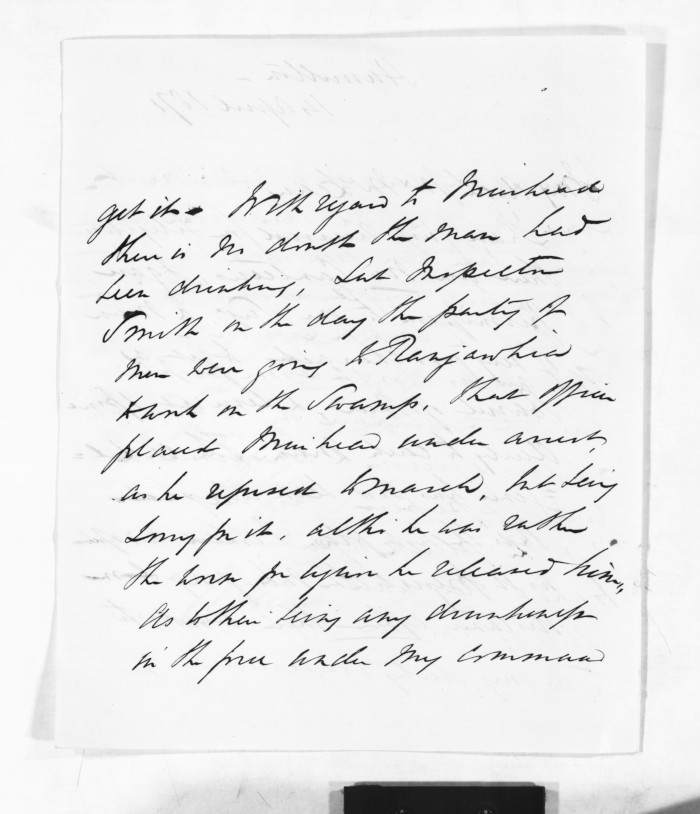 get it. With regard to Muirhead
there is no doubt the man had
been drinking, but Inspector
Smith on the day the party of
men were going to Rangiawhia
to work on the Swamp, that officer
placed Muirhead under arrest,
as he refused to march, but being
sorry for it, altho he was rather
the worse for liquor he released him,
As to their being any drunkenness
in the force under my command